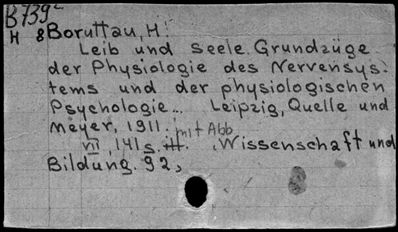 B739
H 8 Boruttau, H.
Leib und Seele. Grundzüge
der Physiologie des Nervensys-
tems und der physiologischen
Psychologie... Leipzig, Quelle und
Meyer, 1911. mit Abb.
VII, 141 s. Wissenschaft und
Bildung. 92,